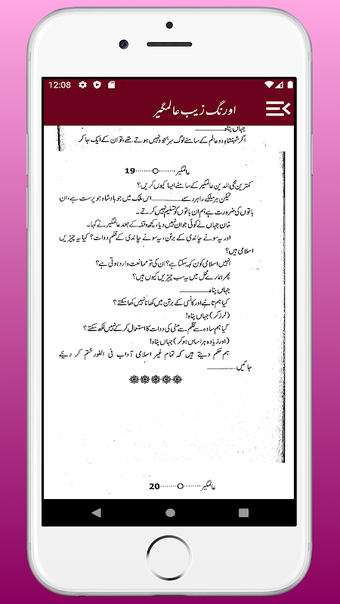 12:08
اورنگ زیب عالمگیر
جہاں پناہ
اگر شہنشاہ دو عالم کے سامنے لوگ سر بسجود نہیں ہوتے تھے، تو ان کے ایک چاکر
عالمگیر 19
کمترین محی الدین عالمگیر کے سامنے ایسا کیوں کریں؟
لیکن میر منگھے راہبر رہے اس ملک میں جو بادشاہ جو پرست ہے، ان
باتوں کی ضرورت ہے ہم ان باتوں کو تسلیم نہیں کرتے۔
خان جہاں نے کوئی جواب نہیں دیا، کچھ وقفہ کے بعد عالمگیر نے کہا۔
اور یہ سونے چاندی کے برتن، یہ سونے چاندی کے قلم دوات؟ کیا یہ چیزیں
اسلامی ہیں؟
انہیں اسلامی کون کہہ سکتا ہے؟ ان کی تو ممانعت وارد ہوئی ہے؟
پھر ہمارے محل میں یہ سب چیزیں کیوں ہیں؟
جہاں پناہ
کیا ہم تانبے اور کانسی کے برتن میں کھانا نہیں کھا سکتے؟
(لرز کر) جہاں پناہ!
کیا ہم سادہ سے قلم سے مٹی کی دوات کا استعمال کر کے نہیں لکھ سکتے؟
(اور زیادہ ہراساں ہو کر) جہاں پناہ!
ہم حکم دیتے ہیں کہ تمام غیر اسلامی آداب فی الفور ختم کر دیے
جائیں
عالمگیر 20